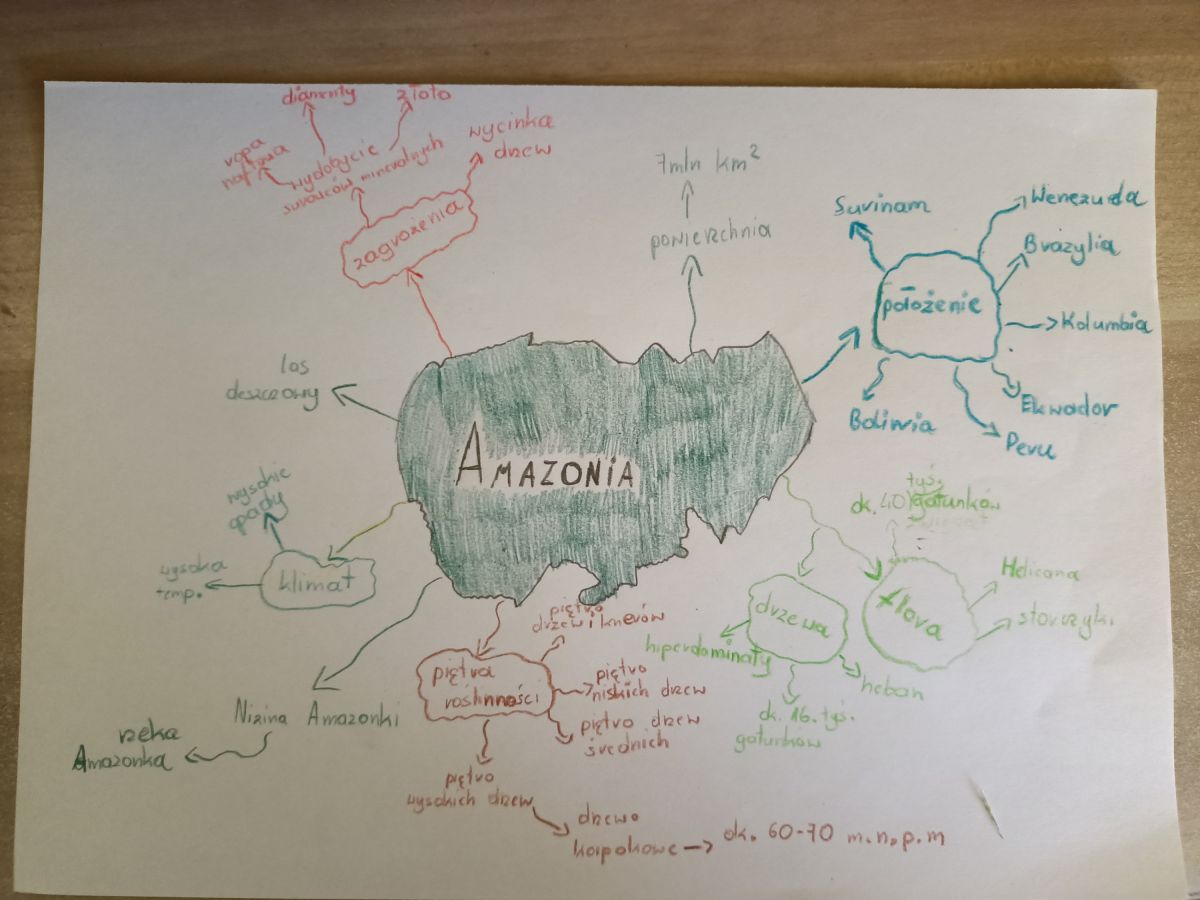 AMAZONIA
zagrożenia
wydobycie
surowców mineralnych
ropa
naftowa
diamenty
złoto
wycinka
drzew
powierzchnia
7mln km²
położenie
Surinam
Wenezuela
Brazylia
Kolumbia
Ekwador
Peru
Boliwia
flora
tyś.
ok. 40 gatunków
Helicona
storczyki
drzewa
hiperdominaty
ok. 16. tyś.
gatunków
heban
piętra
roślinności
piętro
drzew i knerów
piętro
niskich drzew
piętro drzew
średnich
piętro
wysokich drzew
drzewo
kapokowe
ok. 60-70 m.n.p.m
Nizina Amazonki
rzeka
Amazonka
klimat
wysoka
temp.
wysokie
opady
las
deszczowy